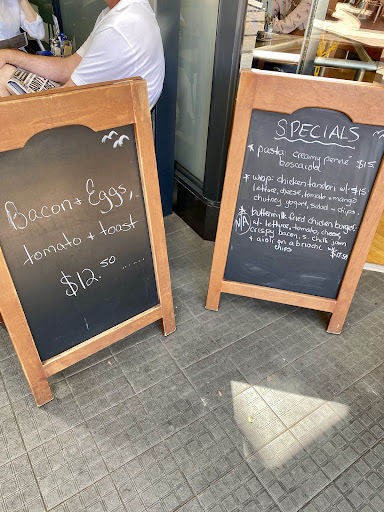 Bacon + Eggs,
tomato + toast
$12.50 ......
SPECIALS
* pasta: creamy penne $15
boscaiola
* wrap: chicken tandori w/- $15
lettuce, cheese, tomato + mango
chutney yogurt, salad + chips.
* buttermilk fried chicken burger
N/A w/- lettuce, tomato, cheese,
crispy bacon, s. chilli jam
+ aioli on a brioche +
chips $17.50